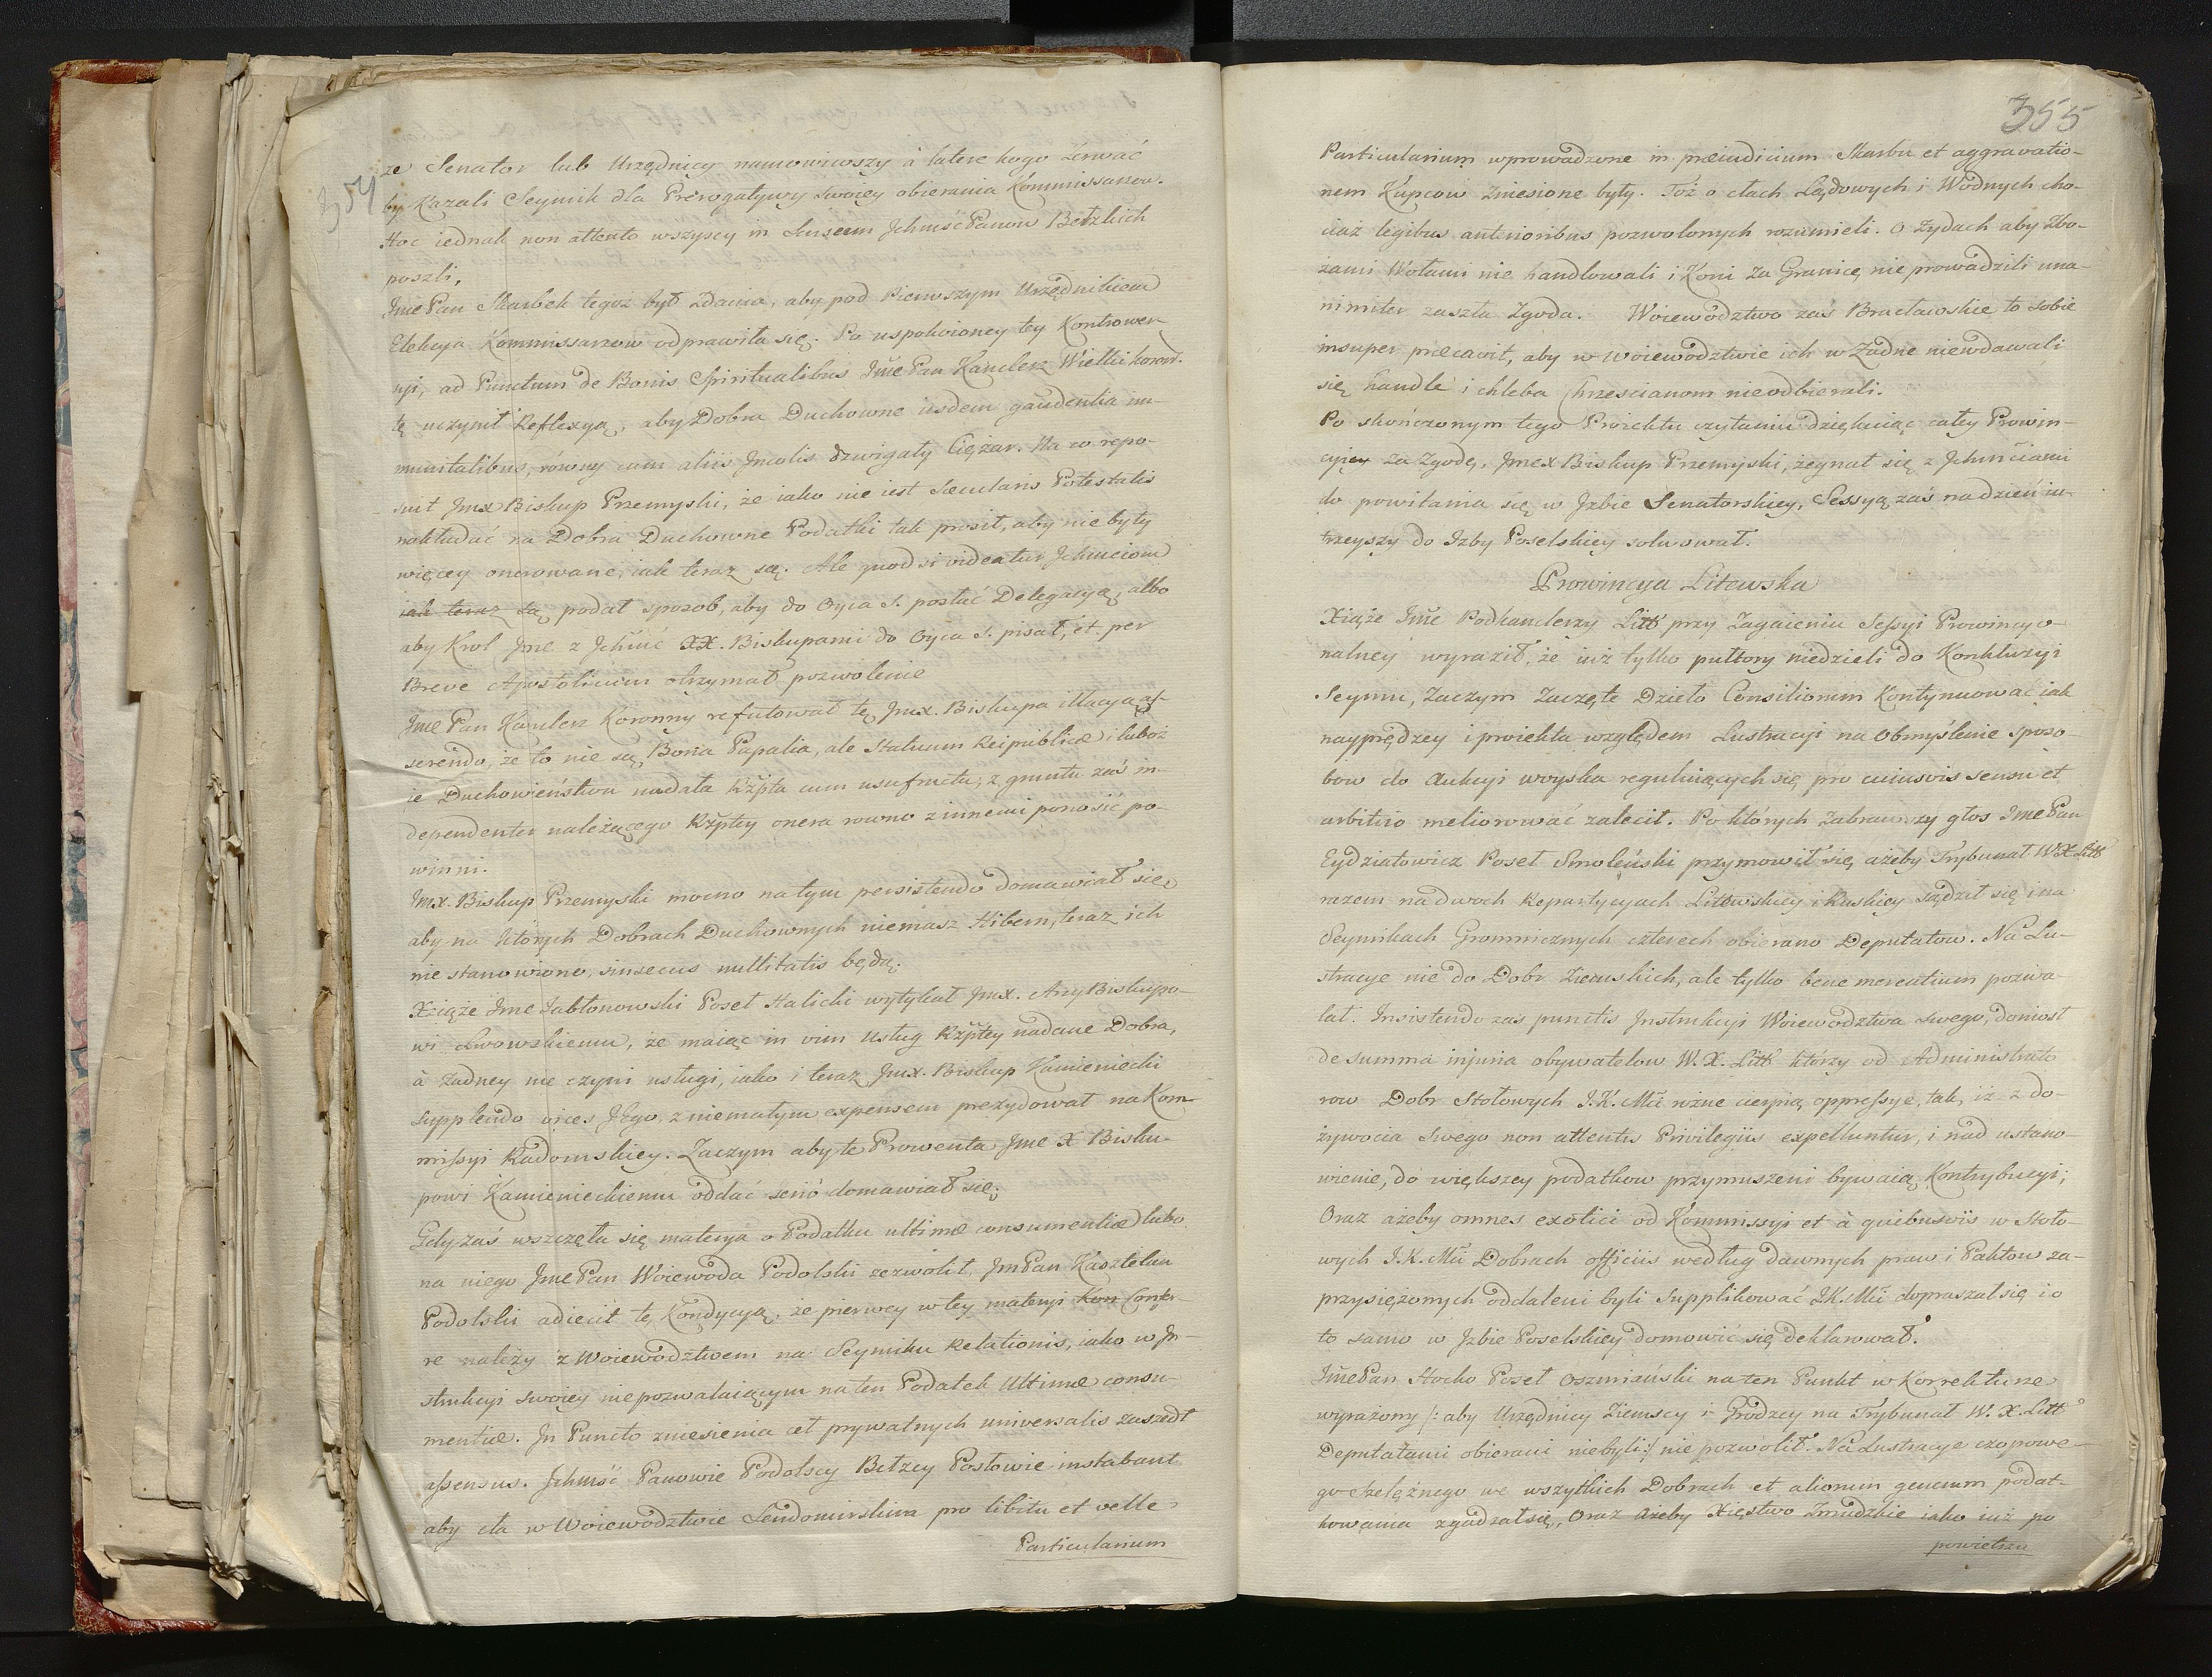 354
ze Senator lub Urzędnicy namowiwszy à latere kogo Zerwać
by Kazali Seymik dla Prerogatywy swoiey obierania Kommissarzow.
Hoc iednak non attento wszyscy in Sensum Jchmść Panow Bełzkich
poszli,
Jme Pan Skarbek tegoż był zdania, aby pod Pierwszym Urzędnikiem
Elekcya Kommissarzow odprawiła się. Po uspokoioney tey Kontrower
syi, ad Punctum de Bonis Spiritualibus Jme Pan Kanclerz Wielki koron.
tę uczynił Reflexyą, aby Dobra Duchowne iisdem gaudentia im-
munitatibus, rowny cum aliis Jncolis dzwigały Ciężar. Na co repo-
suit Jmx Biskup Przemyski, że iako nie iest Sæcularis Potestatis
nakładać na Dobra Duchowne Podatki tak prosił, aby nie były
więcey onerowane, iak teraz są. Ale quod si videatur Jchmciom
iak teraz są podał sposob, aby do Oyca S. posłać Delegacyą, albo
aby Krol Jme z Jchmć XX. Biskupami do Oyca S. pisał, et per
Breve Apostolicum otrzymał pozwolenie
Jme Pan Kanclerz Koronny refutował tę Jmx. Biskupa illacyą as-
serendo, że to nie są Bona Papalia, ale Statuum Reipublicæ i luboż
ie Duchowieństwu nadała Rzpta cum usufructu, z gruntu zaś in-
dependenter należącego Rzptey onera rowno z innemi ponosić po-
winni.
Jmx. Biskup Przemyski mocno na tym persistendo domawiał się,
aby na ktorych Dobrach Duchownych niemasz Hibern, teraz ich
nie stanowiono, sinsecus nullitatis będą.
Xiąże Jme Jabłonowski Poseł Halicki wytykał Jmx. ArcyBiskupo-
wi Lwowskiemu, że maiąc in vim usług Rzptey nadane Dobra,
à żadney nie czyni usługi, iako i teraz Jmx. Biskup Kamieniecki
supplendo vices Jego, z niemałym expensem prezydował na Kom-
missyi Radomskiey. Zaczym aby te Prowenta Jme X Bisku-
powi Kamienieckiemu oddać serió domawiał się,
Gdy zaś wszczęła się materya o Podatku ultimæ consumentiæ lubo
na niego Jme Pan Woiewoda Podolski zezwolił. Jm Pan Kasztelan
Podolski adiecit tę Kondycyą, że pierwey w tey materyi Kon Confer-
re należy z Woiewodztwem na Seymiku Relationis, iako w Jn-
strukcyi swoiey niepozwalaiącym na ten Podatek Ultimæ consu-
mentiæ. Jn Puncto zniesienia ceł prywatnych universalis zaszedł
assensus. Jchmść Panowie Podolscy Bełzcy Posłowie instabant
aby cła w Woiewodztwie Sendomirskim pro libitu et velle
Particularium
355
Particularium wprowadzone in præiudicium Skarbu et aggravatio-
nem Kupcow zniesione były. Toż o cłach Lądowych i Wodnych cho-
ciaż legibus anterioribus pozwolonych rozumieli. O Żydach aby Zbo-
żami Wołami nie handlowali i Koni za Granicę nie prowadzili una-
nimiter zaszła Zgoda. Woiewodztwo zaś Bracławskie to sobie
insuper præcavit, aby w Woiewodztwie ich w Żadne niewdawali
się handle i chleba Chrzescianom nieodbierali.
Po skończonym tego Proiektu czytaniu dziękuiąc całey Prowin-
cyiey za Zgodę, Jmex Biskup Przemyski, żegnał się z Jchmściami
do powitania się w Jzbie Senatorskiey, Sessyą zaś na dzień iu-
trzeyszy do Izby Poselskiey solwował.
Prowincya Litewska
Xiąże Jme Podkanclerzy Litt przy Zagaieniu Sessyi Prowincyo-
nalney wyraził, że iuż tylko pułtory niedzieli do Konkluzyi
Seymu, Zaczym Zaczęte Dzieło Consiliorum Kontynuować iak
nayprędzey i proiekta względem Lustracyi na Obmyślenie sposo-
bow do Aukcyi woyska reguluiących się pro cuiusvis sensu et
arbitrio meliorować zalecił. Po których Zabrawszy głos Jme Pan
Eydziatowicz Poseł Smoleński przymowił się, ażeby Trybunał W.X. Litt
razem na dwoch Repartycyach Litewskiey i Ruskiey sądził się i na
Seymikach Gromnicznych czterech obierano Deputatow. Na Lu-
stracye nie do Dobr Ziemskich, ale tylko bene merentium pozwa-
lał. Insistendo zas punctis Jnstrukcyi Woiewodztwa swego, doniosł
de summa injuria obywatelow W. X. Litt ktorzy od Administrato
row Dobr Stołowych J. K. Mci rożne cierpią oppressye, tak, iż z do-
żywocia swego non attentis Privilegiis expelluntur, i nad ustano-
wienie, do większey podatkow przymuszeni bywaią Kontrybucyi;
Oraz ażeby omnes exotici od Kommissyi et à quibusvis w Stoło-
wych J. K. Mci Dobrach officiis według dawnych praw i Paktow za-
przysiężonych oddaleni byli Supplikować JK. Mci dopraszał się i o
to samo w Jzbie Poselskiey domowić się deklarował.
Jme Pan Stocko Poseł Oszmiański na ten Punkt w Korrekturze
wyrażony /: aby Urzędnicy Ziemscy i Grodzcy na Trybunał W. X. Litt
Deputatami obierani niebyli :/ nie pozwolił. Na Lustracye czopowe-
go szelężnego we wszytkich Dobrach et aliorum generum podat-
kowania zgadzał się, Oraz Ażeby Xięstwo Zmudzkie iako iuż po
powietrzu